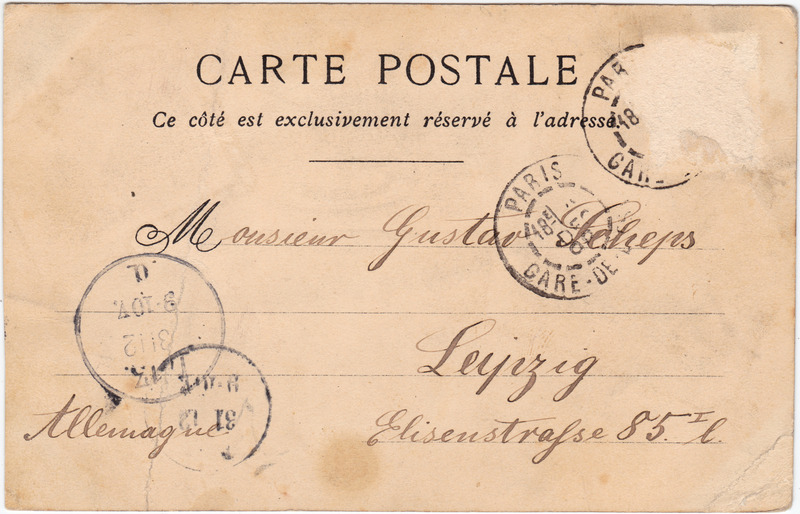 CARTE POSTALE
Ce côté est exclusivement réservé à l'adresse.
PARIS
18
GARE
PARIS
18E
DEC
GARE-DE
Monsieur Gustav Scheps
8-10 V.
31 12
31 12
Leipzig
Allemagne Elisenstraße 85. I l.